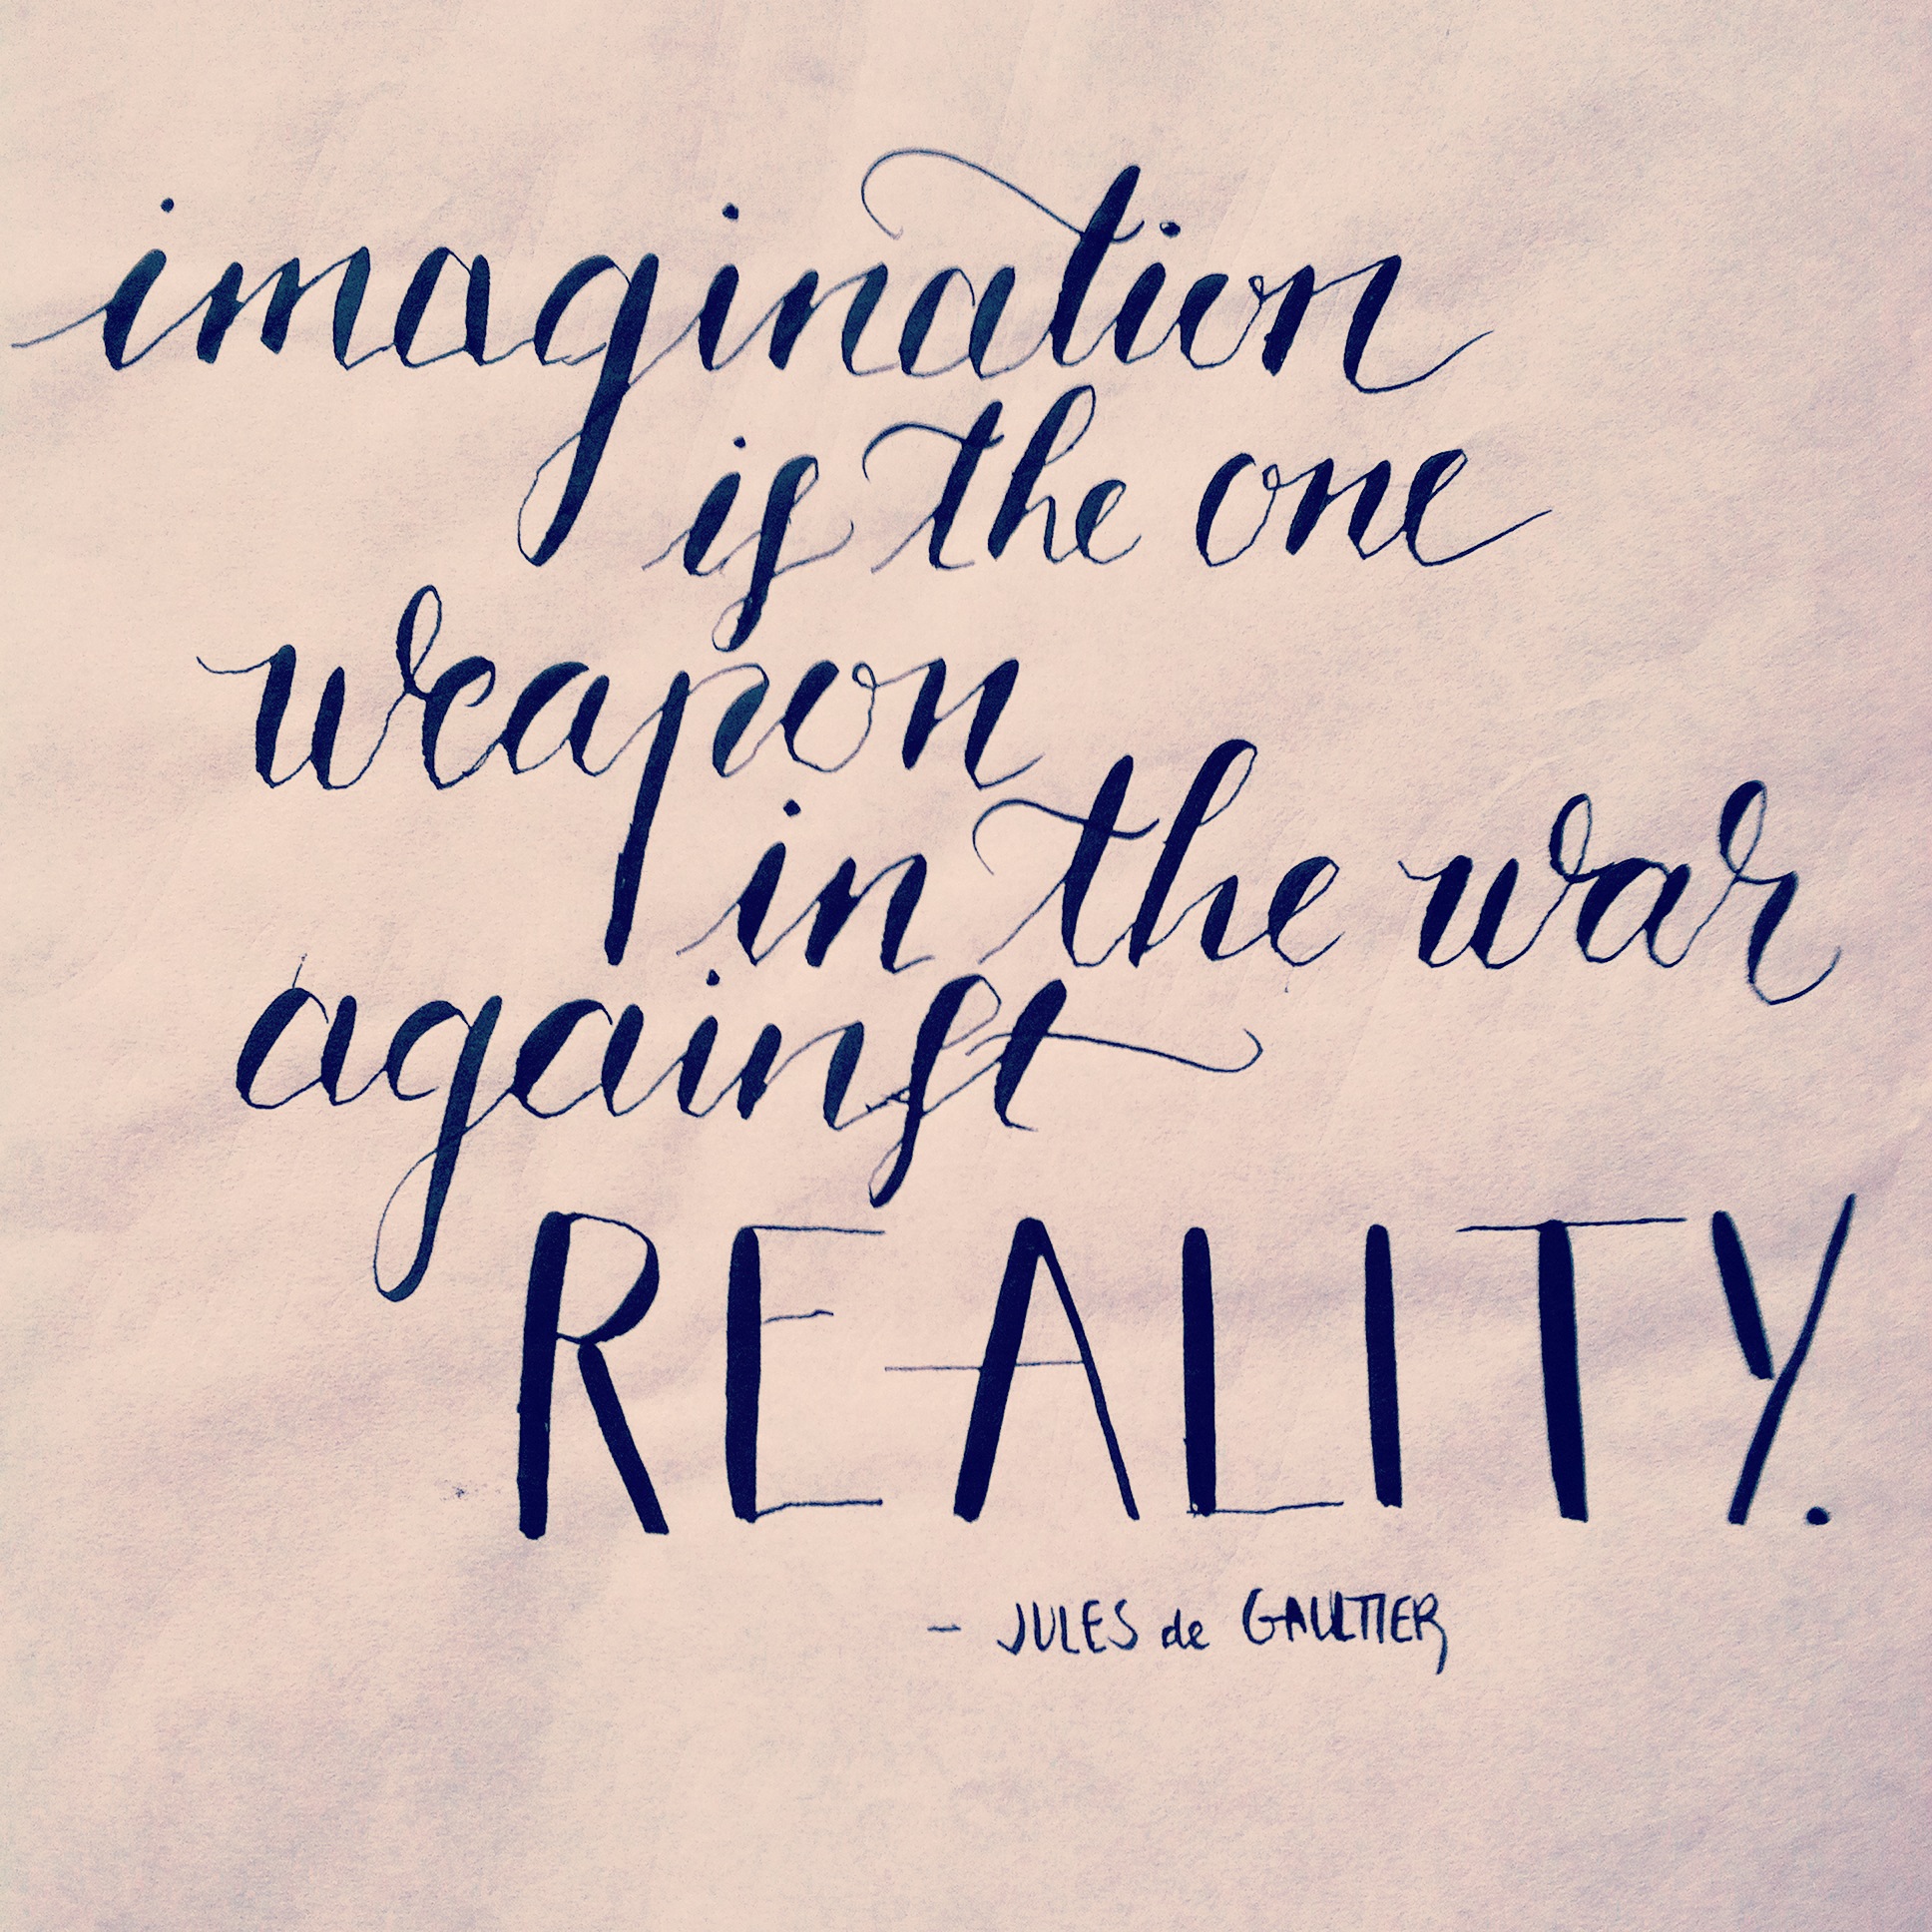 imagination
is the one
weapon
in the war
against
REALITY.
- JULES de GAULTIER